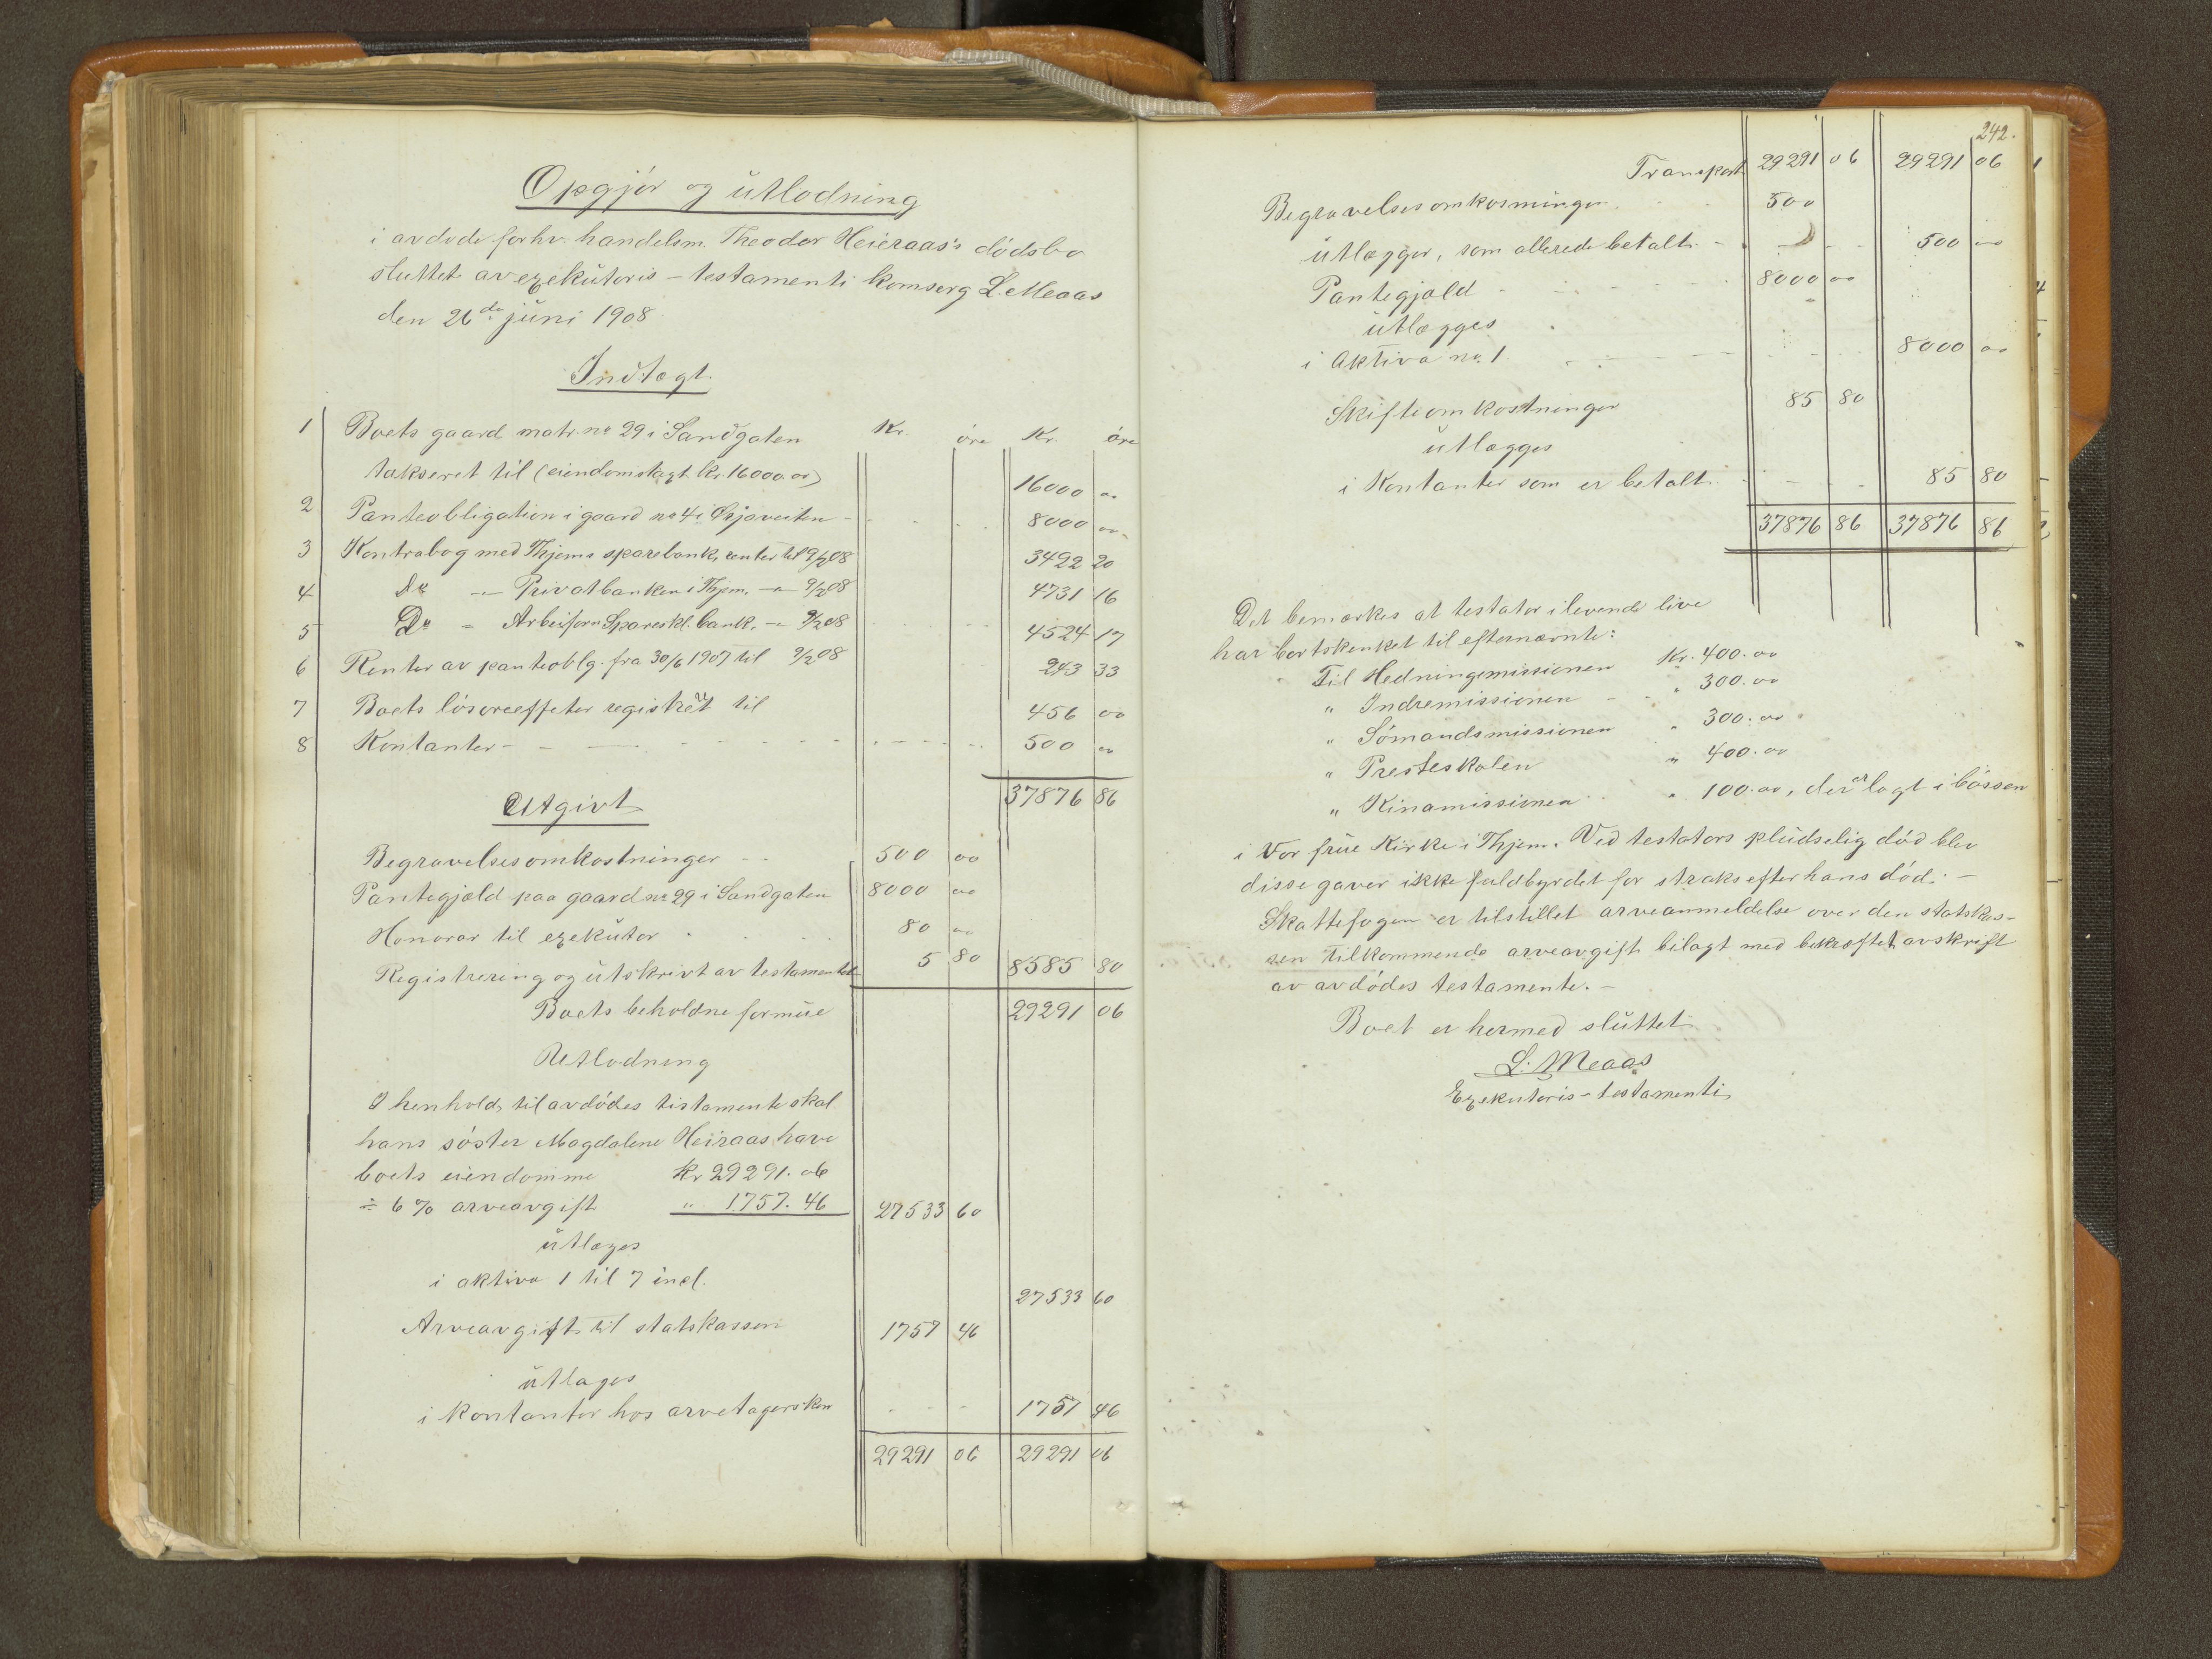 Opgjør og utlodning
i avdøde forhv. handelsm. Theodor Heieraas's dødsbo
sluttet av exekutoris-testamenti komserg L. Meaas
den 26de juni 1908.
Indtægt.
Kr. øre Kr. øre
1 Boets gaard matr. no 29 i Sandgaten
takseret til (eiendomstaxt kr. 16000.00) 16000 00
2 Panteobligation i gaard no 4 i - 8000 00
3 Kontrabog med Thjems sparebank, renter til 9/2 08 3492 20
4 Do - Privatbanken i Thjem. - 9/2 08 4731 16
5 Do - Arbeiforn Spareskl. bank. - 9/2 08 4524 17
6 Renter av panteoblg. fra 30/6 1907 til 9/2 08 243 33
7 Boets løsøreeffeter registrert til 456 00
8 Kontanter - 500 00
37876 86
Utgivt
Begravelsesomkostninger - 500 00
Pantegjæld paa gaard no 29 i Sandgaten 8000 00
Honorar til exekutor 80 00
Registrering og utskrivt av testamentet 5 80 8585 80
Boets beholdne formue 29291 06
Utlodning
I henhold til avdødes testamente skal
hans søster Magdalene Heiraas have
boets eiendomme Kr 29291.06
÷ 6 % arveavgift " 1757.46 27533 60
utlæges
i aktiva 1 til 7 incl. 27533 60
Arveavgift til statskassen 1757 46
utlæges
i kontanter hos arvetagersken 1757 46
29291 06 29291 06
242.
Transport 29291 06 29291 06
Begravelsesomkosninger 500
utlægger, som allerede betalt - 500 00
Pantegjæld - 8000 00
utlægges
i Aktiva no. 1. 8000 00
Skifteomkostninger 85 80
utlægges
i Kontanter som er betalt 85 80
37876 86 37876 86
Det bemærkes at testator i levende live
har bortskenket til efternævnte:
Til Hedningemissionen Kr. 400.00
" Indremissionen - " 300.00
" Sømandsmissionen " 300.00
" Presteskolen " 400.00
" Kinamissionen " 100.00, der er lagt i bøssen
i Vor frue Kirke i Thjem. Ved testators pludselig død blev
disse gaver ikke fuldbyrdet før straks efter hans død. -
Skattefogen er tilstillet arveanmeldelse over den statskas-
sen tilkommende arveavgift bilagt med bekræftet avskrift
av avdødes testamente. -
Boet er hermed sluttet
L. Meaas
Exekutoris-testamenti